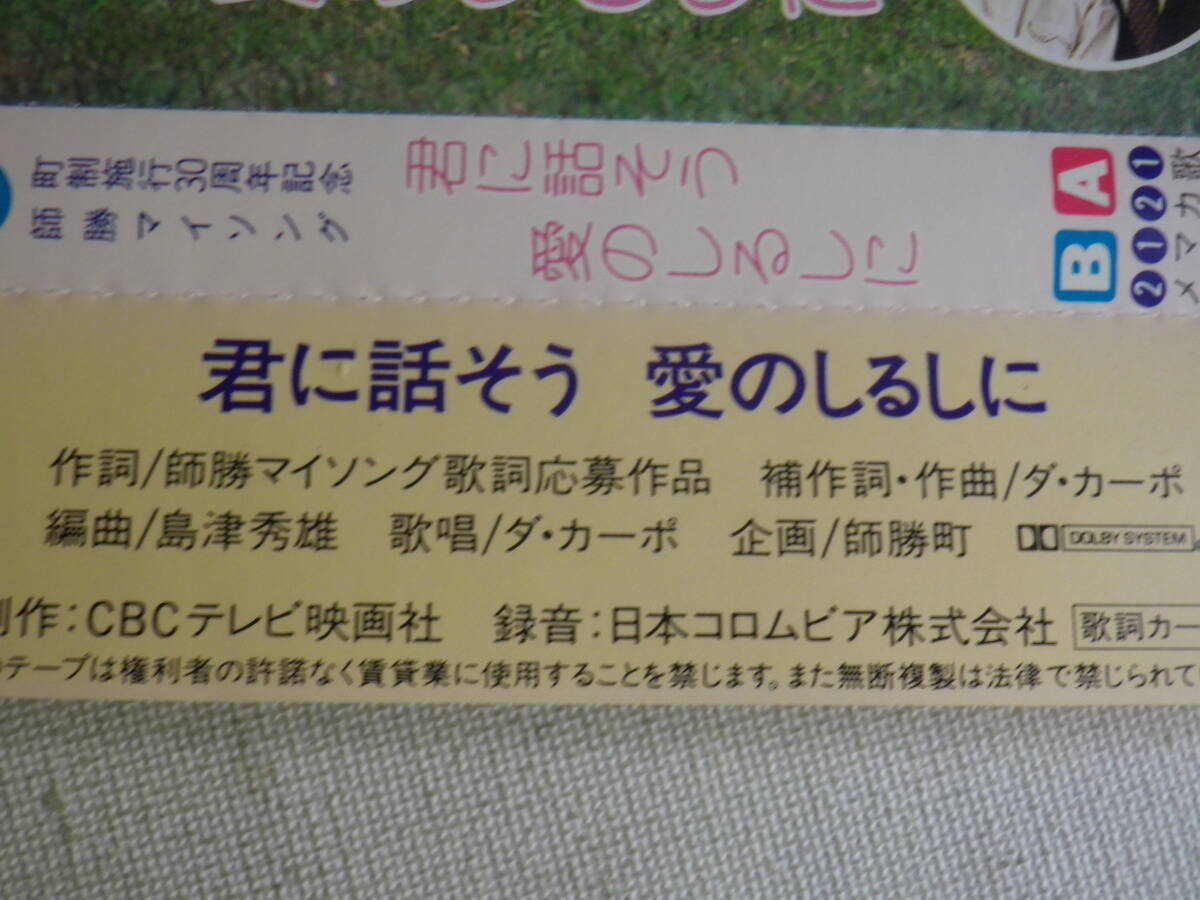 町制施行30周年記念
師勝マイソング
君に話そう
愛のしるしに
A
1 歌
2 カ
B
1 マ
2 メ
君に話そう 愛のしるしに
作詞/師勝マイソング歌詞応募作品 補作詞・作曲/ダ・カーポ
編曲/島津秀雄 歌唱/ダ・カーポ 企画/師勝町 DOLBY SYSTEM
制作:CBCテレビ映画社 録音:日本コロムビア株式会社 歌詞カー
テープは権利者の許諾なく賃貸業に使用することを禁じます。また無断複製は法律で禁じられてい